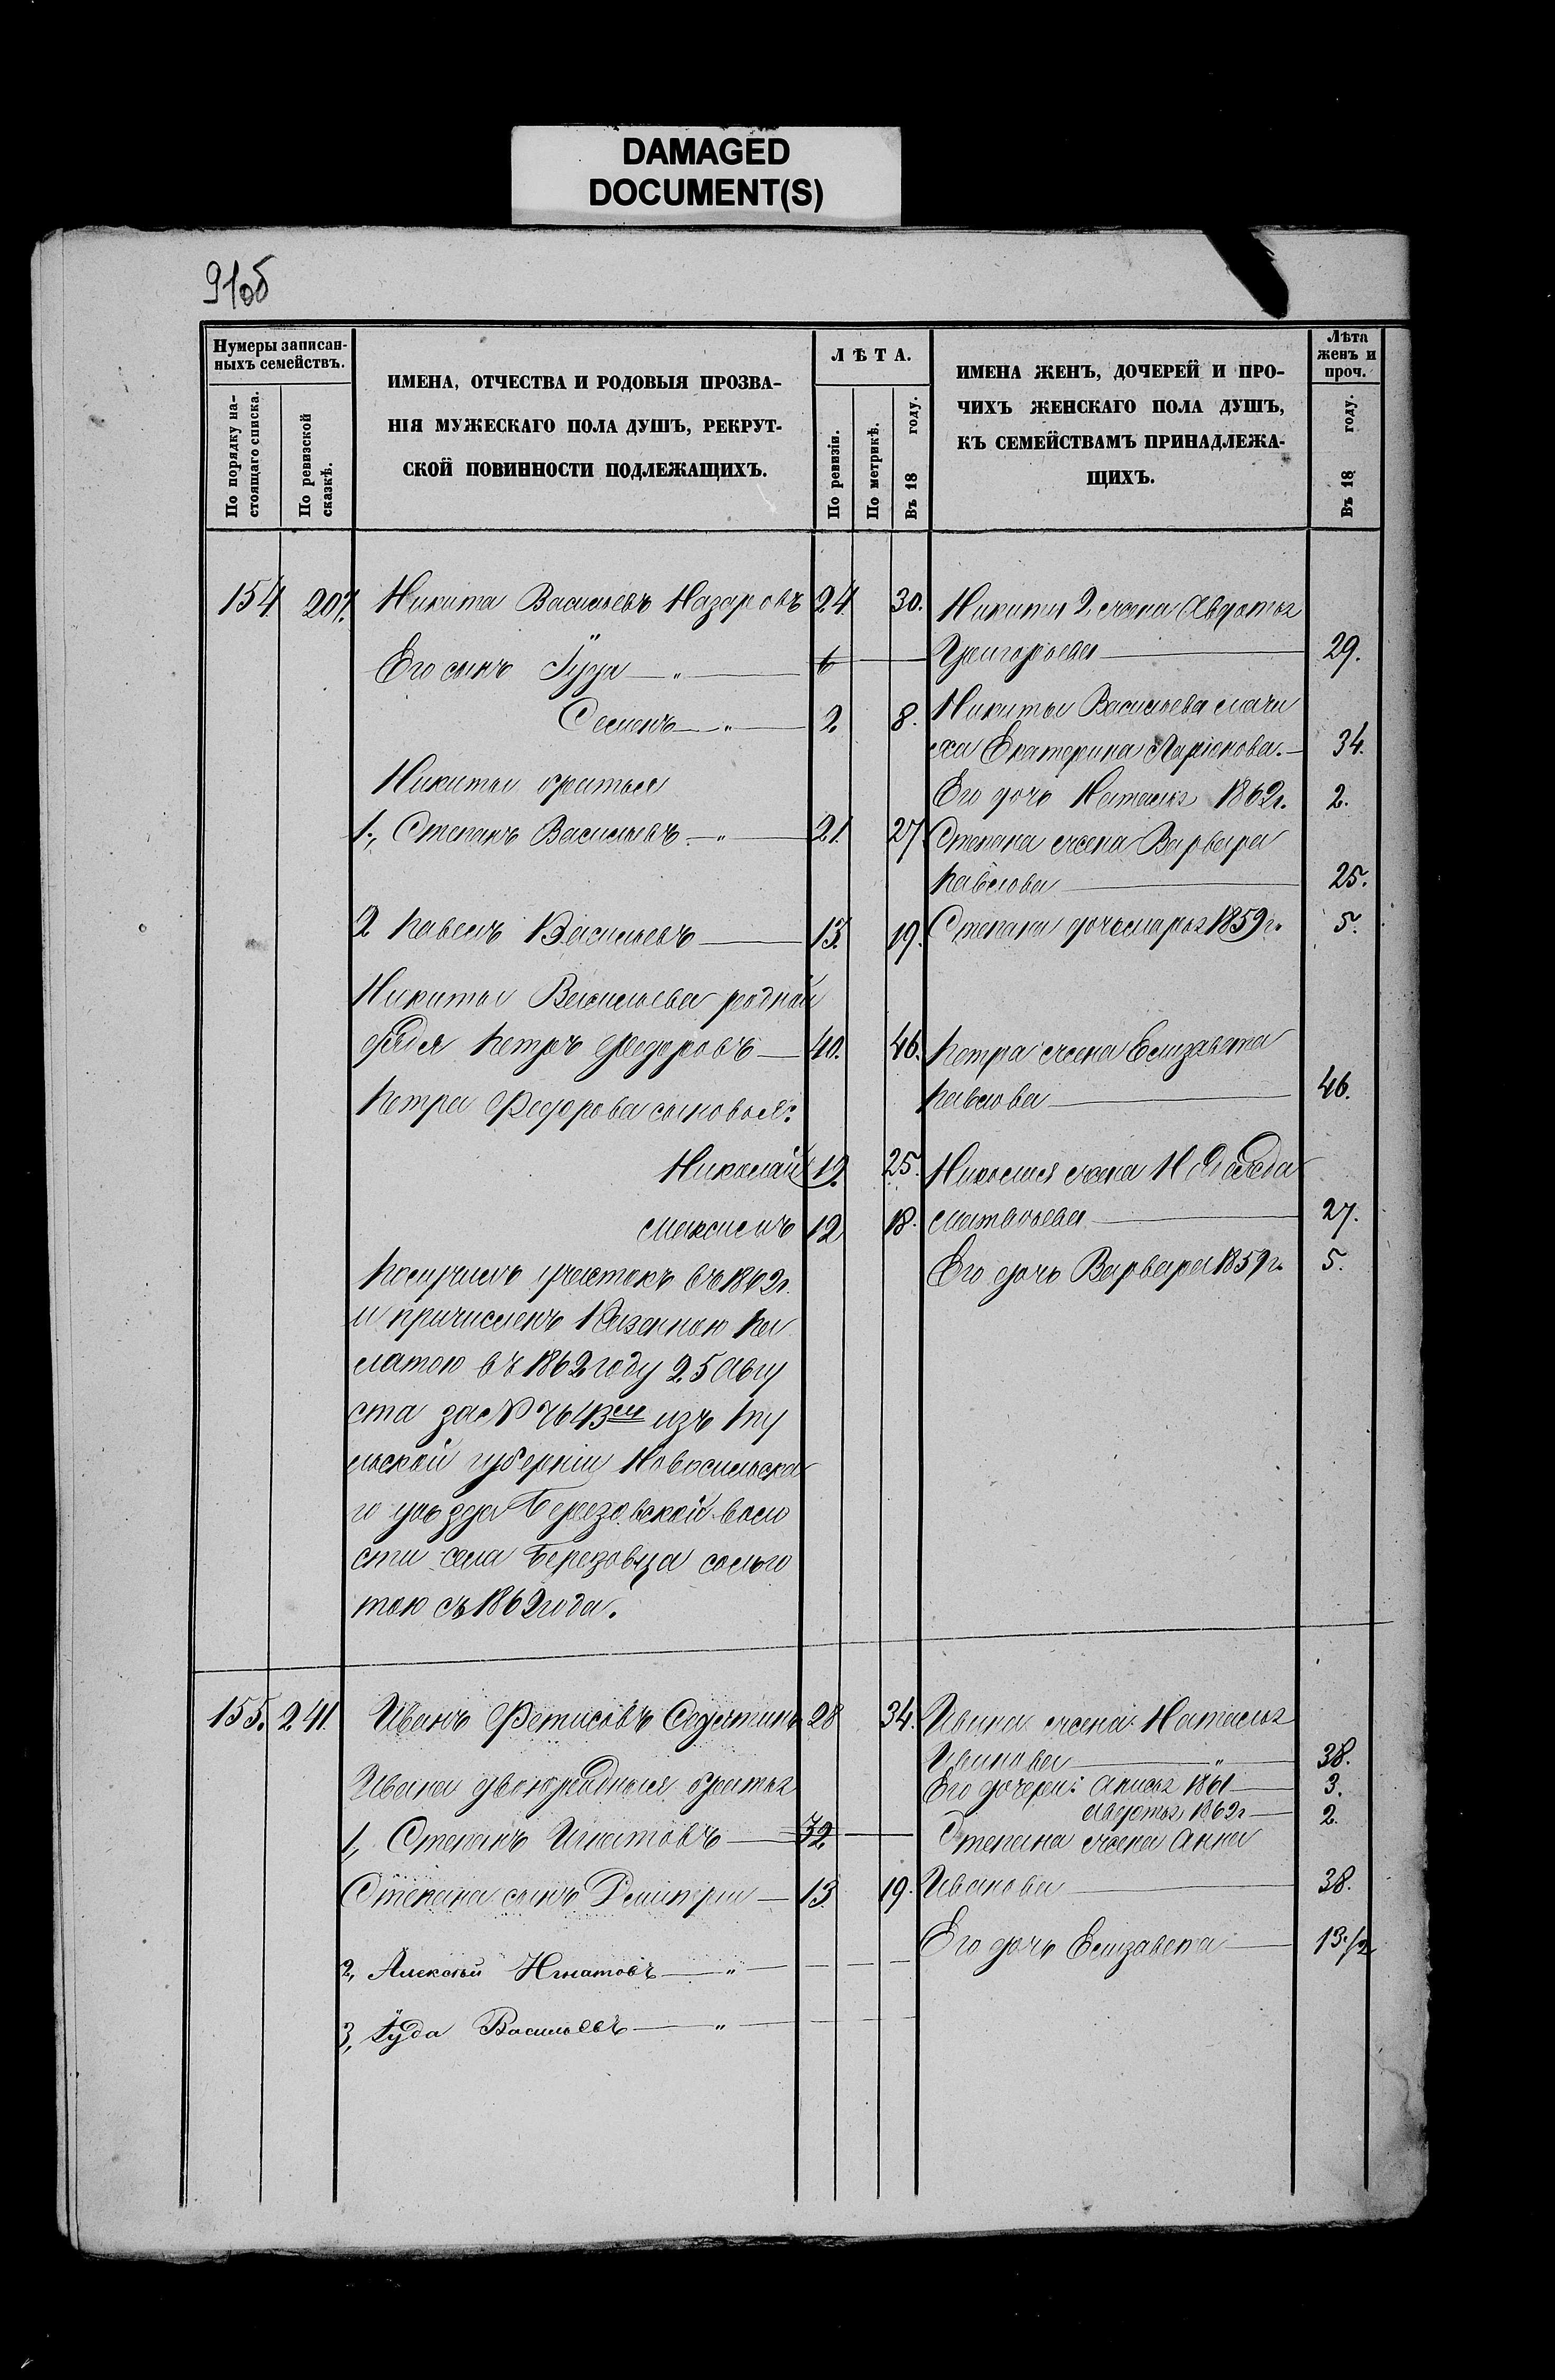 DAMAGED
DOCUMENT(S)
91об
Нумеры записан-
ныхъ семействъ.
По порядку на-
стоящаго списка.
По ревизской
сказкѣ.
ИМЕНА, ОТЧЕСТВА И РОДОВЫЯ ПРОЗВА-
НІЯ МУЖЕСКАГО ПОЛА ДУШЪ, РЕКРУТ-
СКОЙ ПОВИННОСТИ ПОДЛЕЖАЩИХЪ.
ЛѢТА.
По ревизіи.
По метрикѣ.
Въ 18 году.
ИМЕНА ЖЕНЪ, ДОЧЕРЕЙ И ПРО-
ЧИХЪ ЖЕНСКАГО ПОЛА ДУШЪ,
КЪ СЕМЕЙСТВАМЪ ПРИНАДЛЕЖА-
ЩИХЪ.
Лѣта
женъ и
проч.
Въ 18 году.
154 207. Никита Васильевъ Назаровъ 24 30.
Его сынъ Іуда — „ — 6
Семенъ — „ — 2 8.
Никиты братья
1, Степанъ Васильевъ — „ — 21. 27.
2 Павелъ Васильевъ — 13. 19.
Никиты Васильева родной
дядя Петръ Федоровъ — 40. 46.
Петра Федорова сыновья:
Николай 19. 25.
Максимъ 12 18.
Получилъ участокъ въ 1862г.
и причисленъ Казенною Па
латою въ 1862 году 25 Авгу
ста за № 7643м изъ Ту
льской губерніи Новосильска
го уѣзда Березовской воло
сти села Березовца сольго
тою съ 1862 года.
Никиты 2 жена Авдотья
Григорьева — 29.
Никиты Васильева мачи
ха Екатерина Ларіонова. — 34.
Его дочь Наталья 1862г. 2.
Степана жена Варвара
Павлова — 25.
Степана дочь Марья 1859г. 5.
Петра жена Елизавета
Павлова — 46.
Николая жена
Матвѣева — 27.
Его дочь Варвара 1859г. 5.
155. 241. Иванъ Фетисовъ 28 34.
Ивана двоюродныя братья
1, Степанъ Игнатовъ — 32
Степана сынъ Дмитрій — 13 19.
2, Алексѣй Игнатовъ — „ —
3, Іуда Васильевъ — „ —
Ивана жена Наталья
Иванова — „ — 38.
Его дочери: Анисья 1861 — 3.
Авдотья 1862г — 2.
Степана жена Анна
Иванова — 38.
Его дочь Елизавета — 13.1/2